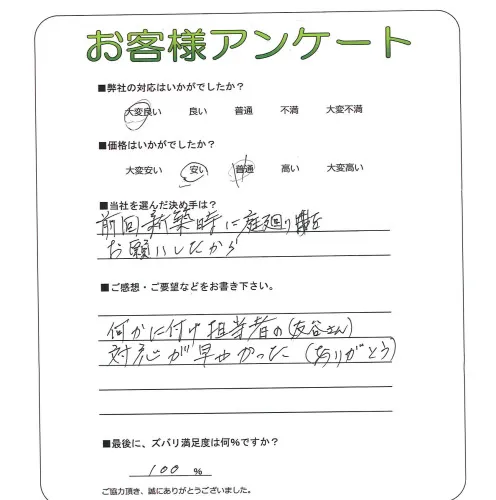 お客様アンケート
■弊社の対応はいかがでしたか？
大変良い 良い 普通 不満 大変不満
■価格はいかがでしたか？
大変安い 安い 普通 高い 大変高い
■当社を選んだ決め手は？
前回新築時に庭廻り
お願いしたから
■ご感想・ご要望などをお書き下さい。
何かに付け担当者の（友谷さん）
対応が早やかった（ありがとう）
■最後に、ズバリ満足度は何%ですか？
100 %
ご協力頂き、誠にありがとうございました。